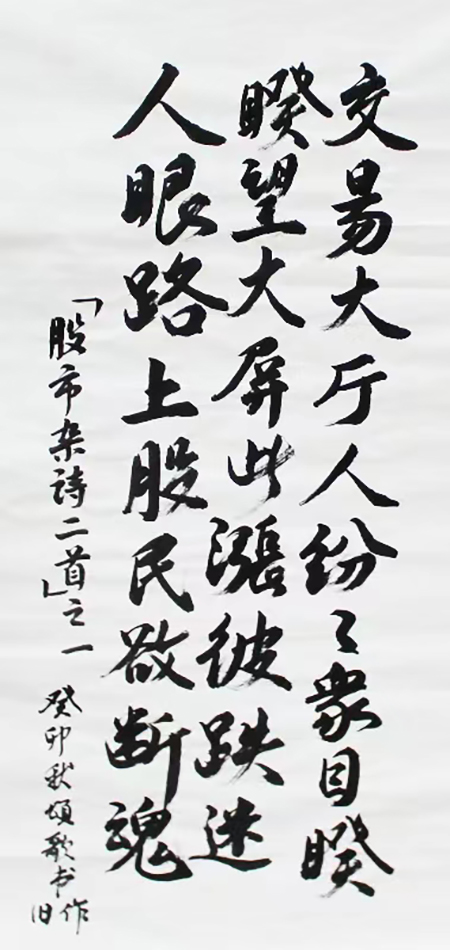 交易大厅人纷々衆目睽
睽望大屏此漲彼跌迷
人眼路上股民欲断魂
「股市杂詩二首」之一 癸卯秋頌歌书旧作